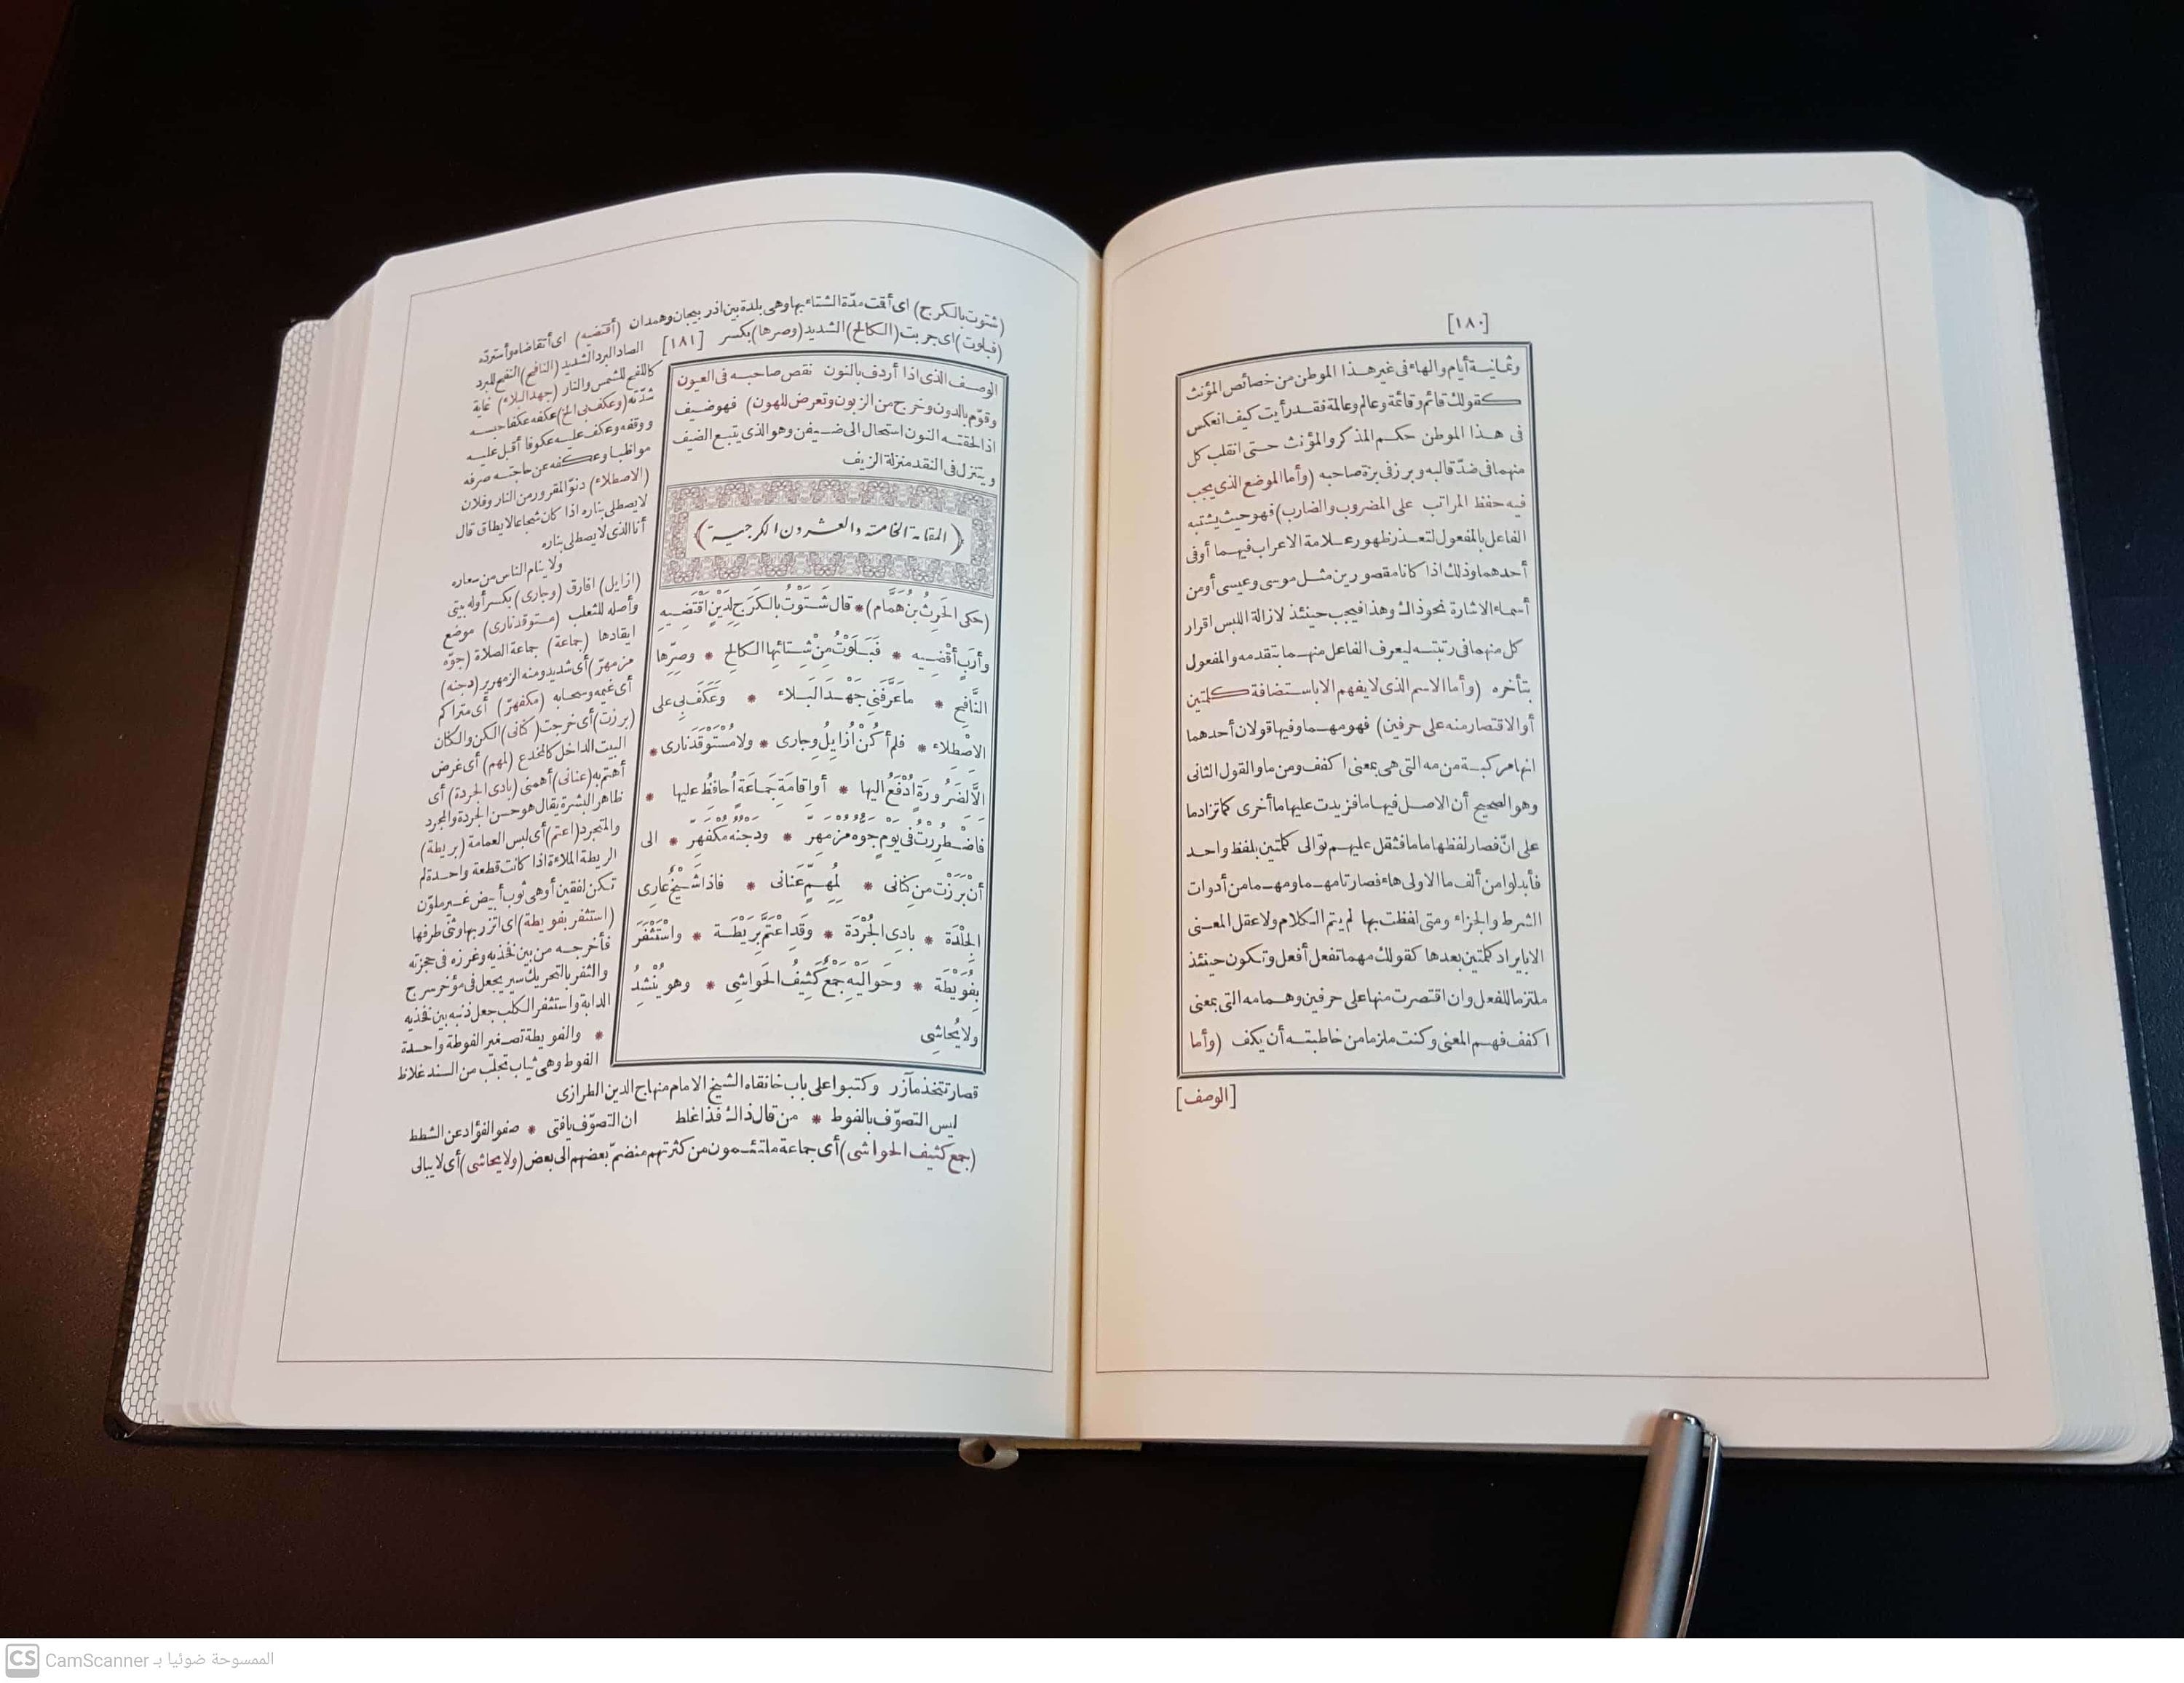 [١٨٠]
وثمانية أيام والهاء فى غير هذا الموطن من خصائص المؤنث
كقولك قائم وقائمة وعالم وعالمة فقد رأيت كيف انعكس
فى هذا الموطن حكم المذكر والمؤنث حتى انقلب كل
منهما فى ضدّ قالبه وبرز فى بزة صاحبه (وأما الموضع الذى يجب
فيه حفظ المراتب على المضروب والضارب) فهو حيث يشتبه
الفاعل بالمفعول لتعذر ظهور علامة الاعراب فيهما أو فى
أحدهما وذلك اذا كانا مقصورين مثل موسى وعيسى أو من
أسماء الاشارة نحو ذاك وهذا فيجب حينئذ لازالة اللبس اقرار
كل منهما فى رتبته ليعرف الفاعل منهما بتقدمه والمفعول
بتأخره (وأما الاسم الذى لا يفهم الا باستضافة كلمتين
أو الاقتصار منه على حرفين) فهو مهما وفيها قولان أحدهما
انها مركبة من مه التى هى بمعنى اكفف ومن ما والقول الثانى
وهو الصحيح أن الاصل فيها ما فزيدت عليها ما أخرى كما تزاد ما
على انّ فصار لفظها ما ما فثقل عليهم توالى كلمتين بلفظ واحد
فأبدلوا من ألف ما الاولى هاء فصارتا مهما ومهما من أدوات
الشرط والجزاء ومتى لفظت بها لم يتم الكلام ولا عقل المعنى
الا بايراد كلمتين بعدها كقولك مهما تفعل أفعل وتكون حينئذ
ملتزما للفعل وان اقتصرت منها على حرفين وهما مه التى بمعنى
اكفف فهم المعنى وكنت ملزما من خاطبته أن يكف (وأما
[الوصف]
(شتوت بالكرج) اى أقت مدّة الشتاء بها وهى بلدة بين اذربيجان وهمدان (أقتضيه) اى أتقاضاه وأسترده
(فبلوت) اى جربت (الكالح) الشديد (وصرها) بكسر [١٨١]
الوصف الذى اذا أردف بالنون نقص صاحبه فى العيون
وقوّم بالدون وخرج من الزبون وتعرض للهون) فهو ضيف
اذا لحقته النون استحال الى ضيفن وهو الذى يتبع الضيف
ويتنزل فى النقد منزلة الزيف
(المقامة الخامسة والعشرون الكرجية)
(حكى الحَرِثُ بنُ هَمَّام) * قال شَتَوْتُ بالكَرَجِ لِدَيْنٍ أقْتَضِيهِ
وأَرَبٍ أقْضِيه * فَبَلَوْتُ مِنْ شِتائِها الكالِحِ * وصِرِّها
النَّافِحِ * ما عَرَّفَنِي جَهْدَ البَلاء * وعَكَفَ بِي على
الاصْطِلاء * فلم أكُنْ أُزايِلُ وِجارى * ولا مُسْتَوْقَدَ نارى *
الاَّ لضَرُورَةٍ أُدْفَعُ اليها * أو إقامَةِ جَماعَةٍ أُحافِظُ عليها *
فاضْطُرِرْتُ فى يَوْمٍ جَوُّه مُزْمَهِرّ * ودَجْنُه مُكْفَهِرّ * الى
أنْ بَرَزْتُ من كِنانى * لِمُهِمٍّ عَنانى * فاذا شَيْخٌ عارِى
الجِلْدَة * بادِى الجُرْدَة * وقَدِ اعْتَمَّ بِرَيْطَة * واسْتَثْفَرَ
بِفُوَيْطَة * وحَوالَيْهِ جَمْعٌ كَثِيفُ الحَواشِى * وهو يُنْشِدُ
ولا يُحاشِى
الصاد البرد الشديد (النافح) النفح للبرد
كاللفح للشمس والنار (جهد البلاء) غاية
شدّته (وعكف بى الخ) عكفه عكفا حبسه
ووقفه وعكف عليه عكوفا أقبل عليه
مواظبا وعكفه عن حاجته صرفه
(الاصطلاء) دنوّ المقرور من النار وفلان
لا يصطلى بناره اذا كان شجاعا لا يطاق قال
أنا الذى لا يصطلى بناره
ولا ينام الناس من سعاره
(ازايل) افارق (وجارى) بكسر أوله بيتى
وأصله للثعلب (مستوقد نارى) موضع
ايقادها (جماعة) جماعة الصلاة (جوّه
مزمهرّ) أى شديد ومنه الزمهرير (دجنه)
أى غيمه وسحابه (مكفهرّ) أى متراكم
(برزت) أى خرجت (كنانى) الكن والكنان
البيت الداخل كالمخدع (لمهم) أى غرض
أهتم به (عنانى) أهمنى (بادى الجردة) أى
ظاهر البشرة يقال هو حسن الجردة والمجرد
والمتجرد (اعتم) أى لبس العمامة (بريطة)
الريطة الملاءة اذا كانت قطعة واحدة لم
تكن لفقين أو هى ثوب أبيض غير ملوّن
(استثفر بفويطة) اى اتزر بها وثنى طرفها
فأخرجه من بين فخذيه وغرزه فى حجزته
والثفر بالتحريك سير يجعل فى مؤخر سرج
الدابة واستثفر الكلب جعل ذنبه بين فخذيه
* والفويطة تصغير الفوطة واحدة
الفوط وهى ثياب تجلب من السند غلاظ
قصار تتخذ مآزر وكتبوا على باب خانقاه الشيخ الامام منهاج الدين الطرازى
ليس التصوّف بالفوط * من قال ذاك فذا غلط ان التصوّف يا فتى * صفو الفؤاد عن الشطط
(جمع كثيف الحواشى) أى جماعة ملتئمون من كثرتهم منضمّ بعضهم الى بعض (ولا يحاشى) أى لا يبالى
CS CamScanner الممسوحة ضوئيا بـ